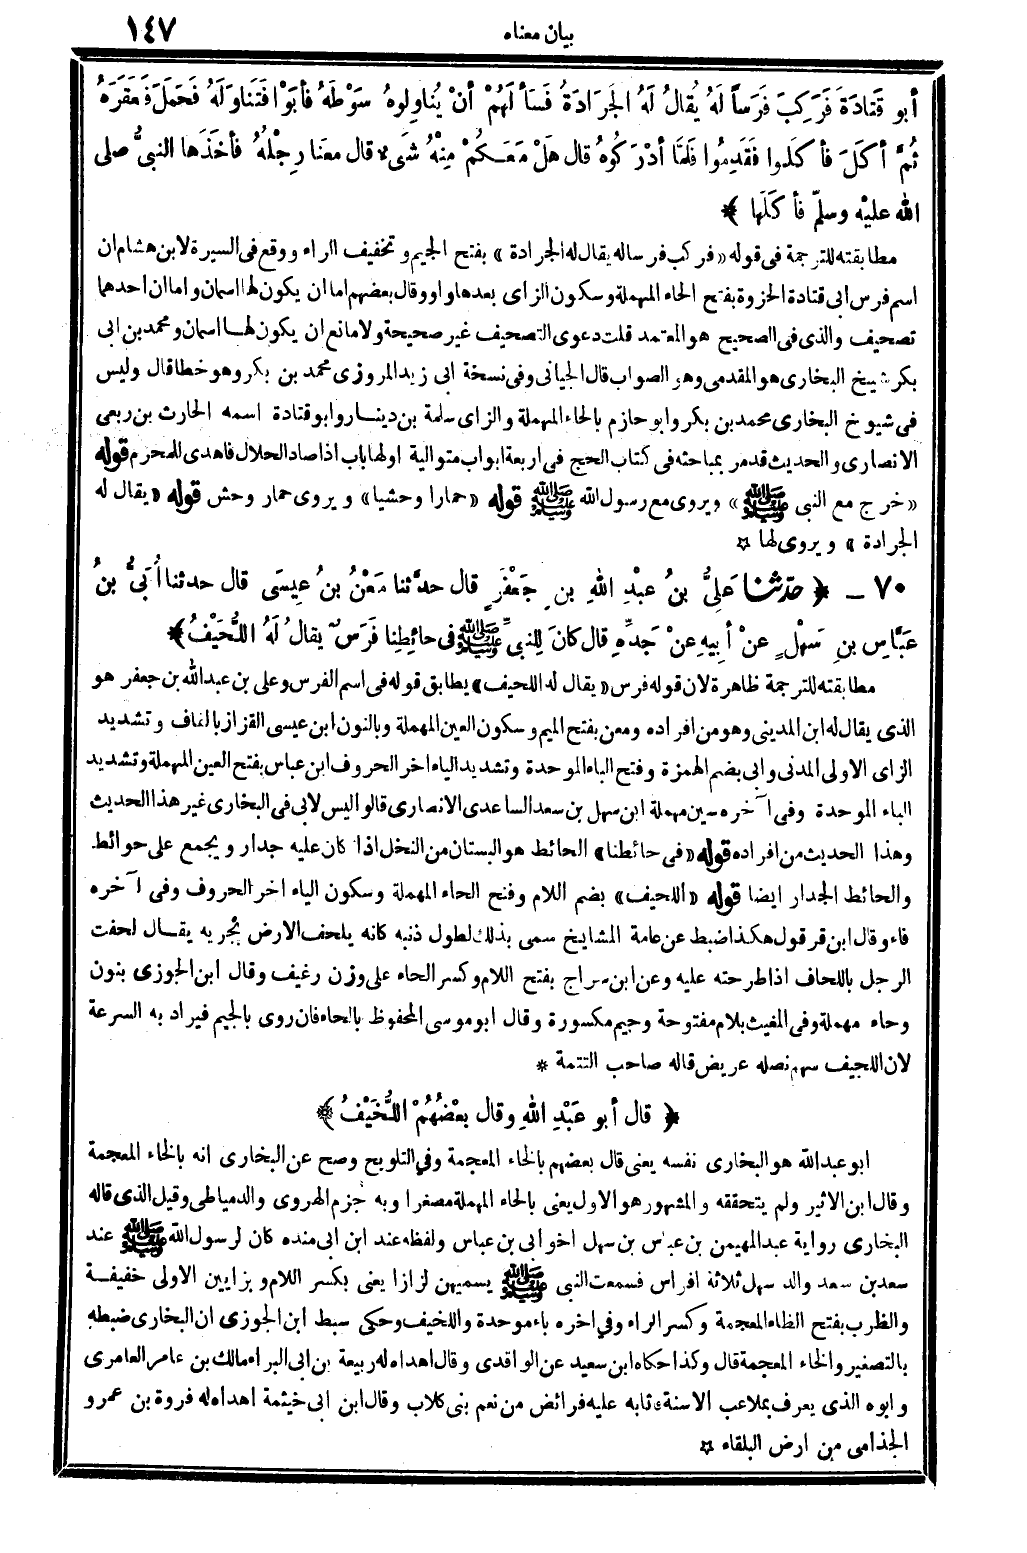 بيان معناه
١٤٧
أبو قَتَادَةَ فَرَكِبَ فَرَساً لَهُ يُقالُ لَهُ الجَرَادَةُ فَسَأَلَهُمْ أنْ يُناوِلوهُ سَوْطَهُ فأبَوْا فَتَناوَلَهُ فَحَمَلَ فَعَقَرَهُ
ثُمَّ أكَلَ فأكَلوا فَقَدِمُوا فَلمَّا أدْرَكُوهُ قال هَلْ مَعَكمْ مِنْهُ شَىءٌ قال معَنا رِجْلُهُ فأخَذَها النبيُّ صلى
الله عليْه وسلّم فأكَلَها ﴾
مطابقته للترجمة فى قوله «فركب فرسا له يقال له الجرادة» بفتح الجيم وتخفيف الراء ووقع فى السيرة لابن هشام ان
اسم فرس ابى قتادة الحزوة بفتح الحاء المهملة وسكون الزاى بعدها واو وقال بعضهم اما ان يكون لها اسمان واما ان احدهما
تصحيف والذى فى الصحيح هو المعتمد قلت دعوى التصحيف غير صحيحة ولا مانع ان يكون لهــا اسمان ومحمد بن ابى
بكر شيخ البخارى هو المقدمى وهو الصواب قال الجيانى وفى نسخة ابى زيد المروزى محمد بن بكر وهو خطا قال وليس
فى شيوخ البخارى محمد بن بكر وابو حازم بالحاء المهملة والزاى سلمة بن دينــار وابو قتادة اسمه الحارث بن ربعى
الانصارى والحديث قد مر بمباحثه فى كتاب الحج فى اربعة ابواب متوالية اولها باب اذا صاد الحلال فاهدى للمحرم قوله
«خرج مع النبى ﷺ» ويروى مع رسول الله ﷺ قوله «حمارا وحشيا» ويروى حمار وحش قوله «يقال له
الجرادة» ويروى لها ☆
٧٠ ــ ﴿ حدّثنا عَلِىُّ بنُ عبْدِ اللهِ بنِ جَعْفَرٍ قال حدَّثنا مَعْنُ بنُ عِيسَى قال حدثنا أُبَىُّ بنُ
عَبَّاسِ بنِ سَهْلٍ عنْ أبِيهِ عنْ جَدِّهِ قال كانَ لِلنبيِّ ﷺ فى حائِطِنا فَرَسٌ يقالُ لَهُ اللُّحَيْفُ ﴾
مطابقته للترجمة ظاهرة لان قوله فرس «يقال له اللحيف» يطابق قوله فى اسم الفرس وعلى بن عبد الله بن جعفر هو
الذى يقال له ابن المدينى وهو من افراده ومعن بفتح الميم وسكون العين المهملة وبالنون ابن عيسى القزاز بالقاف وتشديد
الزاى الاولى المدنى وابى بضم الهمزة وفتح الباء الموحدة وتشديد الياء اخر الحروف ابن عباس بفتح العين المهملة وتشديد
الباء الموحدة وفى آخره سين مهملة ابن سهل بن سعد الساعدى الانصارى قالوا ليس لابى فى البخارى غير هذا الحديث
وهذا الحديث من افراده قوله «فى حائطنا» الحائط هو البستان من النخل اذا كان عليه جدار ويجمع على حوائط
والحائط الجدار ايضا قوله «اللحيف» بضم اللام وفتح الحاء المهملة وسكون الياء اخر الحروف وفى آخره
فاء وقال ابن قرقول هكذا ضبط عن عامة المشايخ سمى بذلك لطول ذنبه كانه يلحف الارض بجريه يقــال لحفت
الرجل باللحاف اذا طرحته عليه وعن ابن سراج بفتح اللام وكسر الحاء على وزن رغيف وقال ابن الجوزى بنون
وحاء مهملة وفى المغيث بلام مفتوحة وجيم مكسورة وقال ابو موسى المحفوظ بالحاء فان روى بالجيم فيراد به السرعة
لان اللجيف سهم نصله عريض قاله صاحب التتمة *
﴿ قال أبو عَبْدِ اللهِ وقال بعْضُهُمْ اللُّخَيْفُ ﴾
ابو عبد الله هو البخارى نفسه يعنى قال بعضهم بالخاء المعجمة وفى التلويح وصح عن البخارى انه بالخاء المعجمة
وقال ابن الاثير ولم يتحققه والمشهور هو الاول يعنى بالحاء المهملة مصغرا وبه جزم الهروى والدمياطى وقيل الذى قاله
البخارى رواية عبد المهيمن بن عباس بن سهل اخو ابى بن عباس ولفظه عند ابن ابى منده كان لرسول الله ﷺ عند
سعد بن سعد والد سهل ثلاثة افراس فسمعت النبى ﷺ يسميهن لزازا يعنى بكسر اللام وبزايين الاولى خفيفــة
والظرب بفتح الظاء المعجمة وكسر الراء وفى اخره باء موحدة واللخيف وحكى سبط ابن الجوزى ان البخارى ضبطه
بالتصغير والخاء المعجمة قال وكذا حكاه ابن سعيد عن الواقدى وقال اهداه له ربيعة بن ابى البراء مالك بن عامر العامرى
وابوه الذى يعرف بملاعب الاسنة فاثابه عليه فرائض من نعم بنى كلاب وقال ابن ابى خيثمة اهداه له فروة بن عمرو
الجذامى من ارض البلقاء ☆